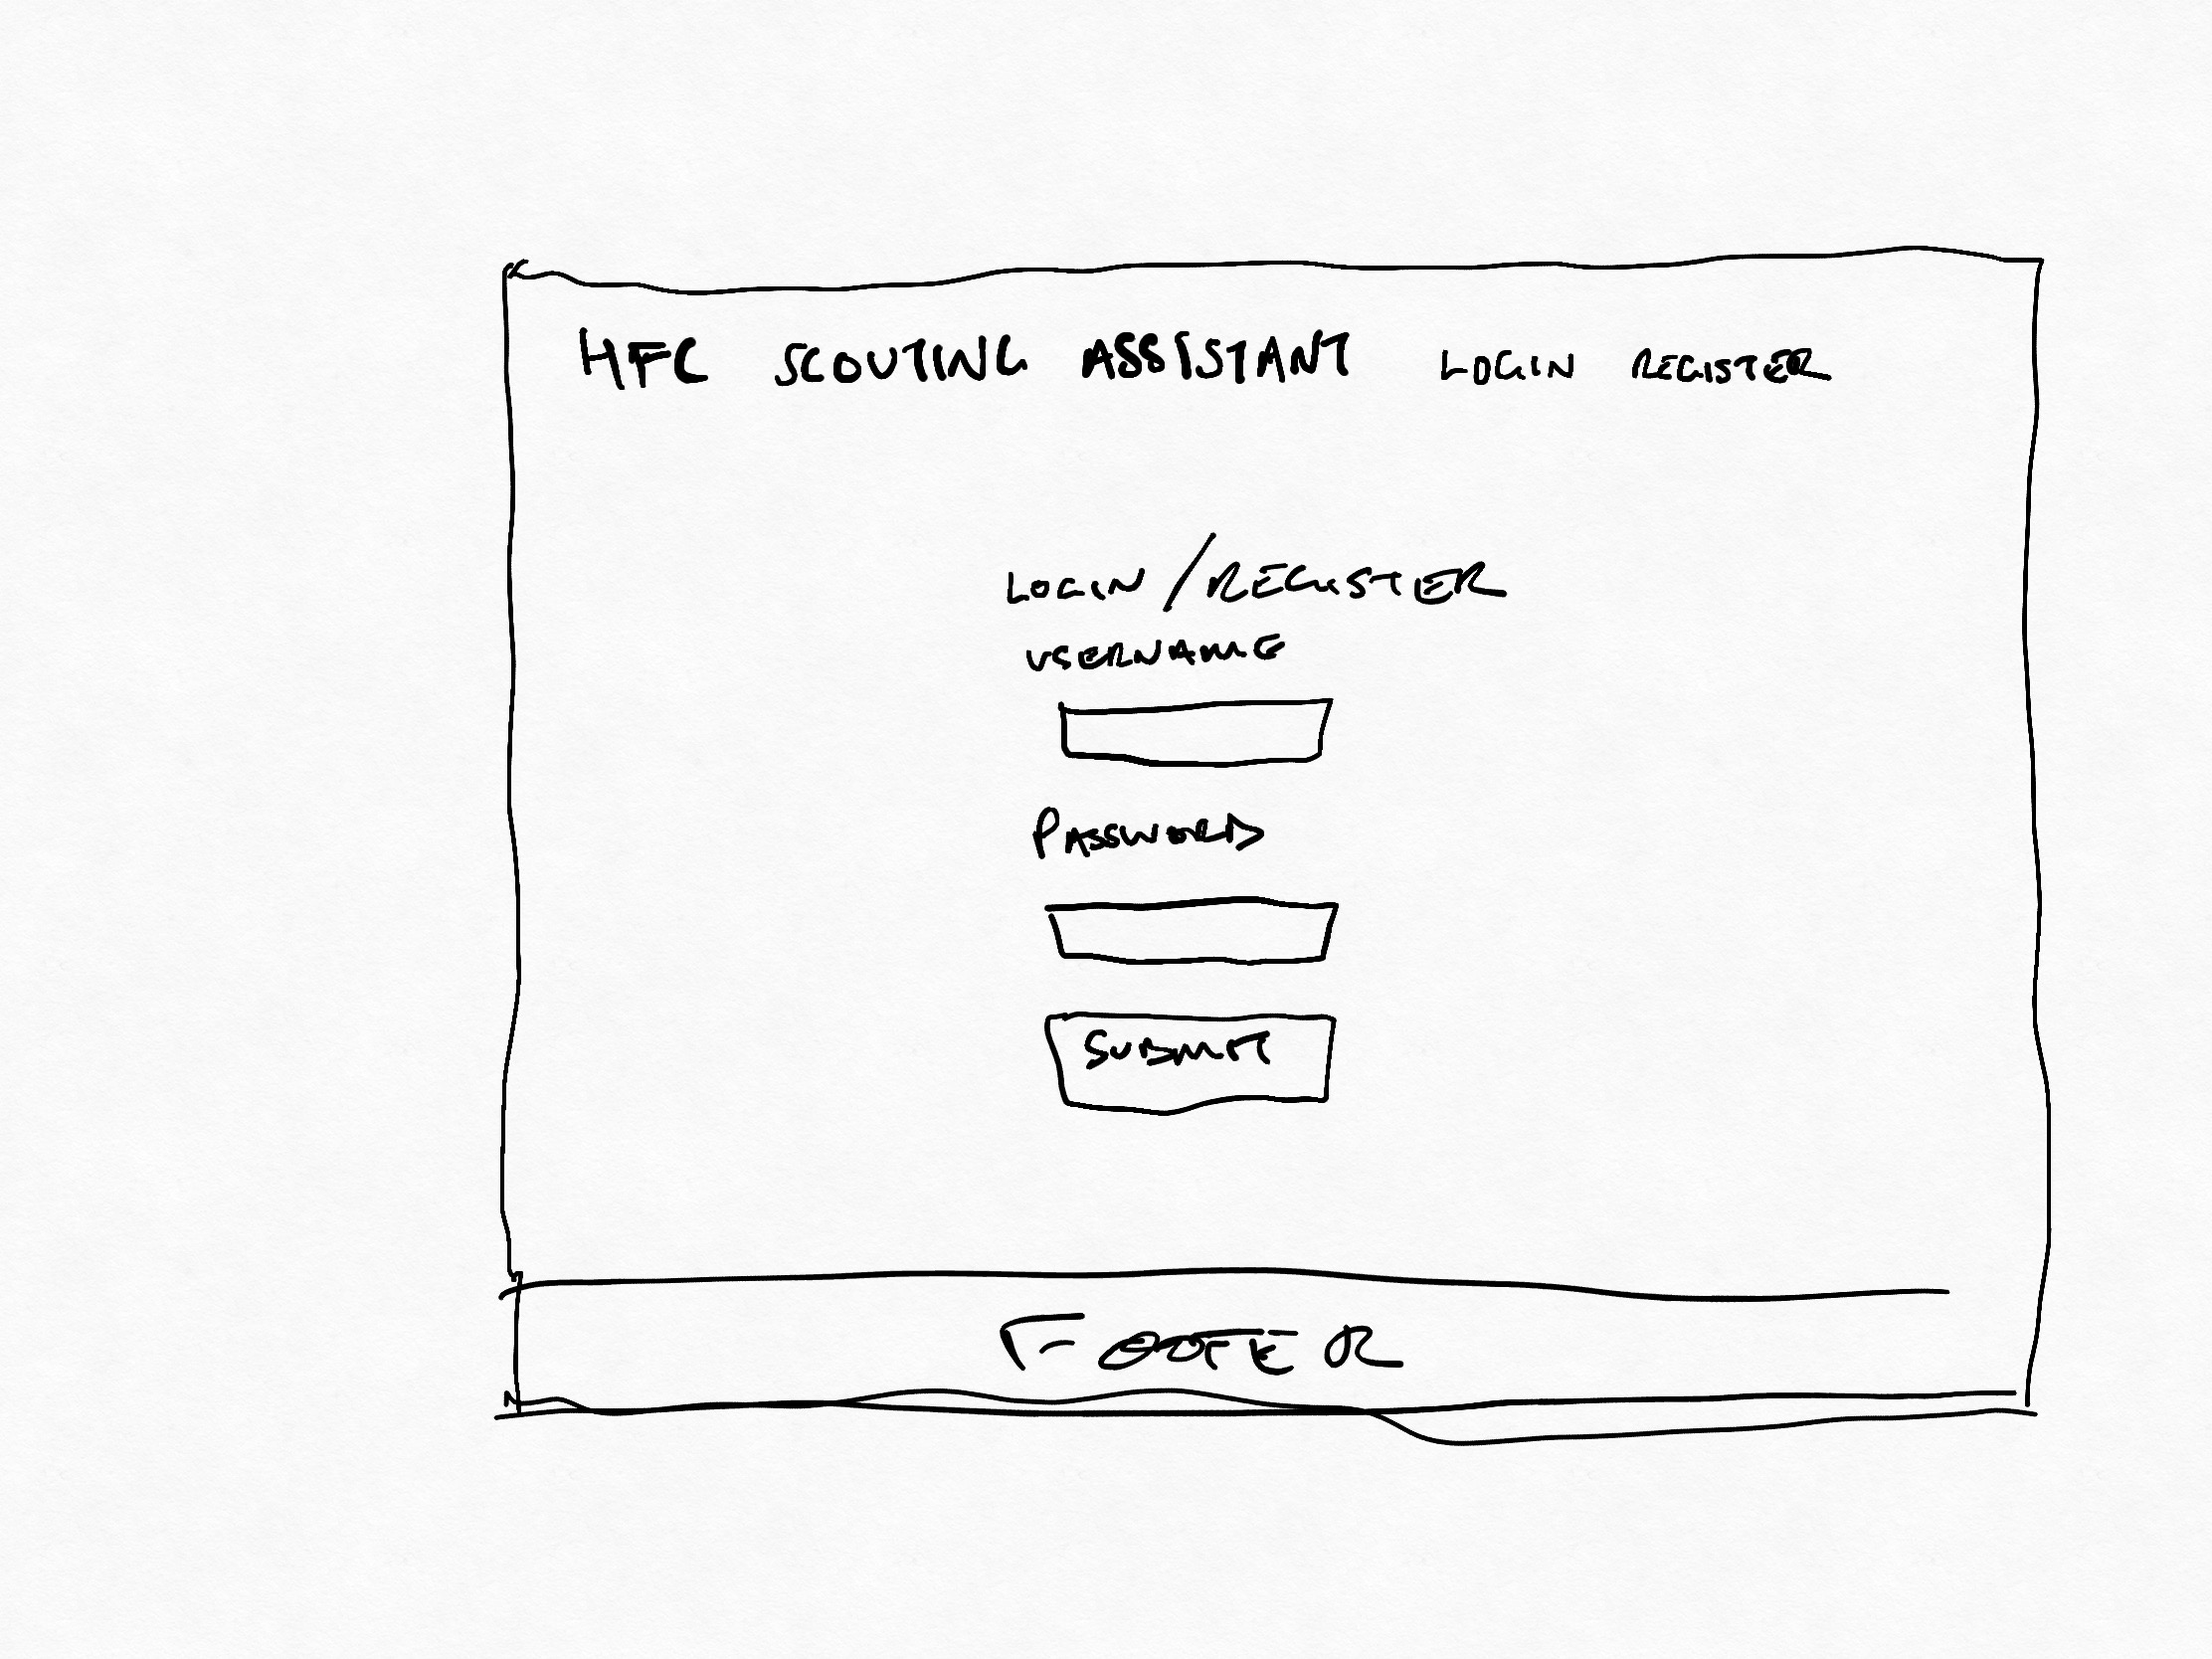 HFC SCOUTING ASSISTANT LOGIN REGISTER
LOGIN/REGISTER
USERNAME
PASSWORD
SUBMIT
FOOTER